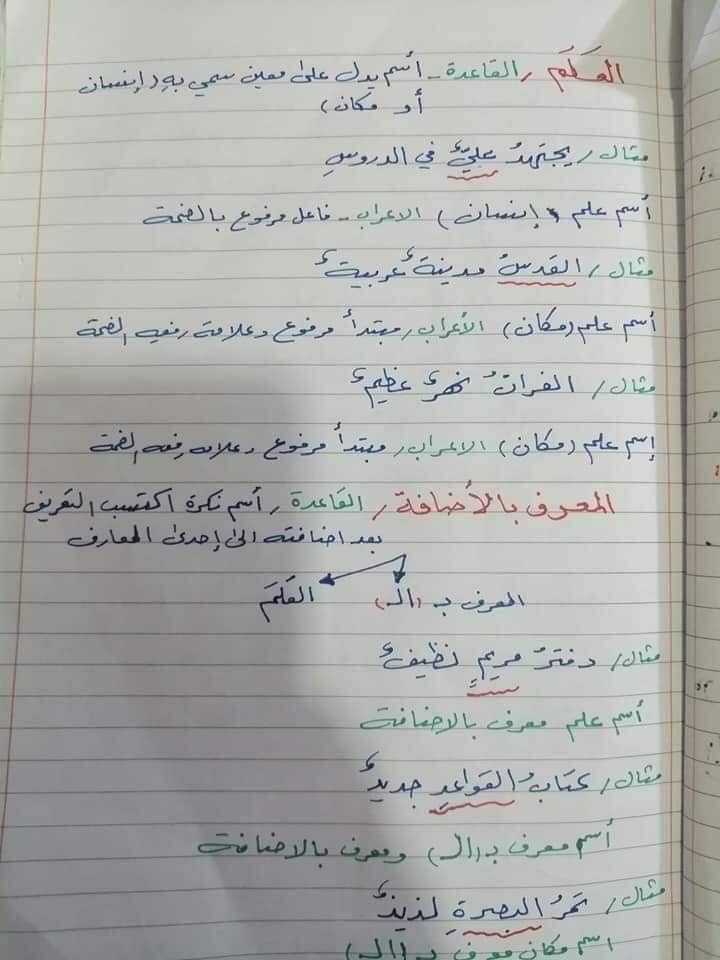 العَلَم / القاعدة - أسم يدل على معين سمي بهِ (إنسان
أو مكان)
مثال / يجتهدُ عليٌ في الدروسِ
أسم علم (إنسان) الاعراب - فاعل مرفوع بالضمة
مثال / القدسُ مدينةٌ عربيةٌ
أسم علم (مكان) الأعراب / مبتدأ مرفوع وعلامة رفعه الضمة
مثال / الفراتُ نهرٌ عظيمٌ
إسم علم (مكان) الاعراب / مبتدأ مرفوع وعلامة رفعه الضمة
المعرف بالأضافة / القاعدة / أسم نكرة اكتسب التعريف
بعد اضافته الى إحدى المعارف
المعرف بـ (الـ) العَلَم
مثال / دفترُ مريمٍ نظيفٌ
أسم علم معرف بالاضافة
مثال / كتابُ القواعدِ جديدٌ
أسم معرف بـ (الـ) ومعرف بالاضافة
مثال / تمرُ البصرةِ لذيذٌ
اسم مكان معرف بـ (الـ)